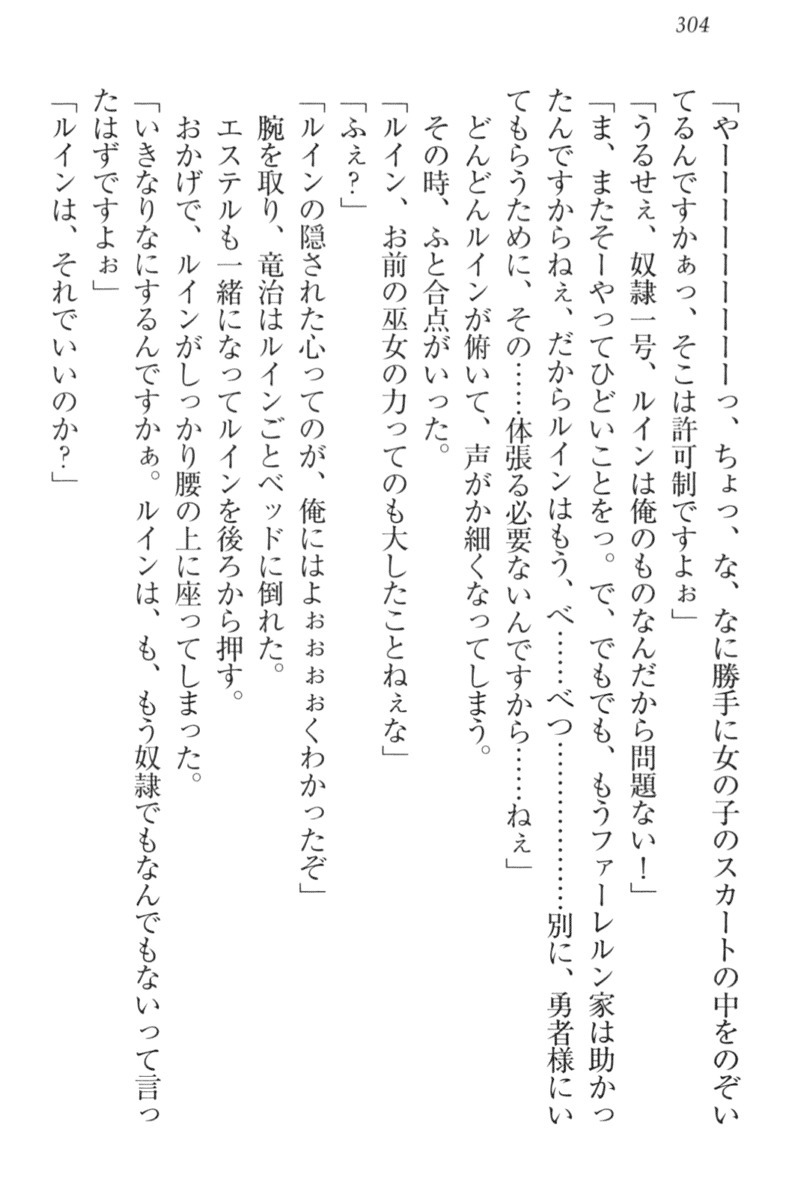 304
「やーーーーーーーーーーっ、ちょっ、な、なに勝手に女の子のスカートの中をのぞい
てるんですかぁっ、そこは許可制ですよぉ」
「うるせぇ、奴隷一号、ルインは俺のものなんだから問題ない！」
「ま、またそーやってひどいことをっ。で、でもでも、もうファーレルン家は助かっ
たんですからねぇ、だからルインはもう、べ……べつ………………別に、勇者様にい
てもらうために、その……体張る必要ないんですから……ねぇ」
どんどんルインが俯いて、声がか細くなってしまう。
その時、ふと合点がいった。
「ルイン、お前の巫女の力ってのも大したことねぇな」
「ふぇ？」
「ルインの隠された心ってのが、俺にはよぉぉぉぉくわかったぞ」
腕を取り、竜治はルインごとベッドに倒れた。
エステルも一緒になってルインを後ろから押す。
おかげで、ルインがしっかり腰の上に座ってしまった。
「いきなりなにするんですかぁ。ルインは、も、もう奴隷でもなんでもないって言っ
たはずですよぉ」
「ルインは、それでいいのか？」